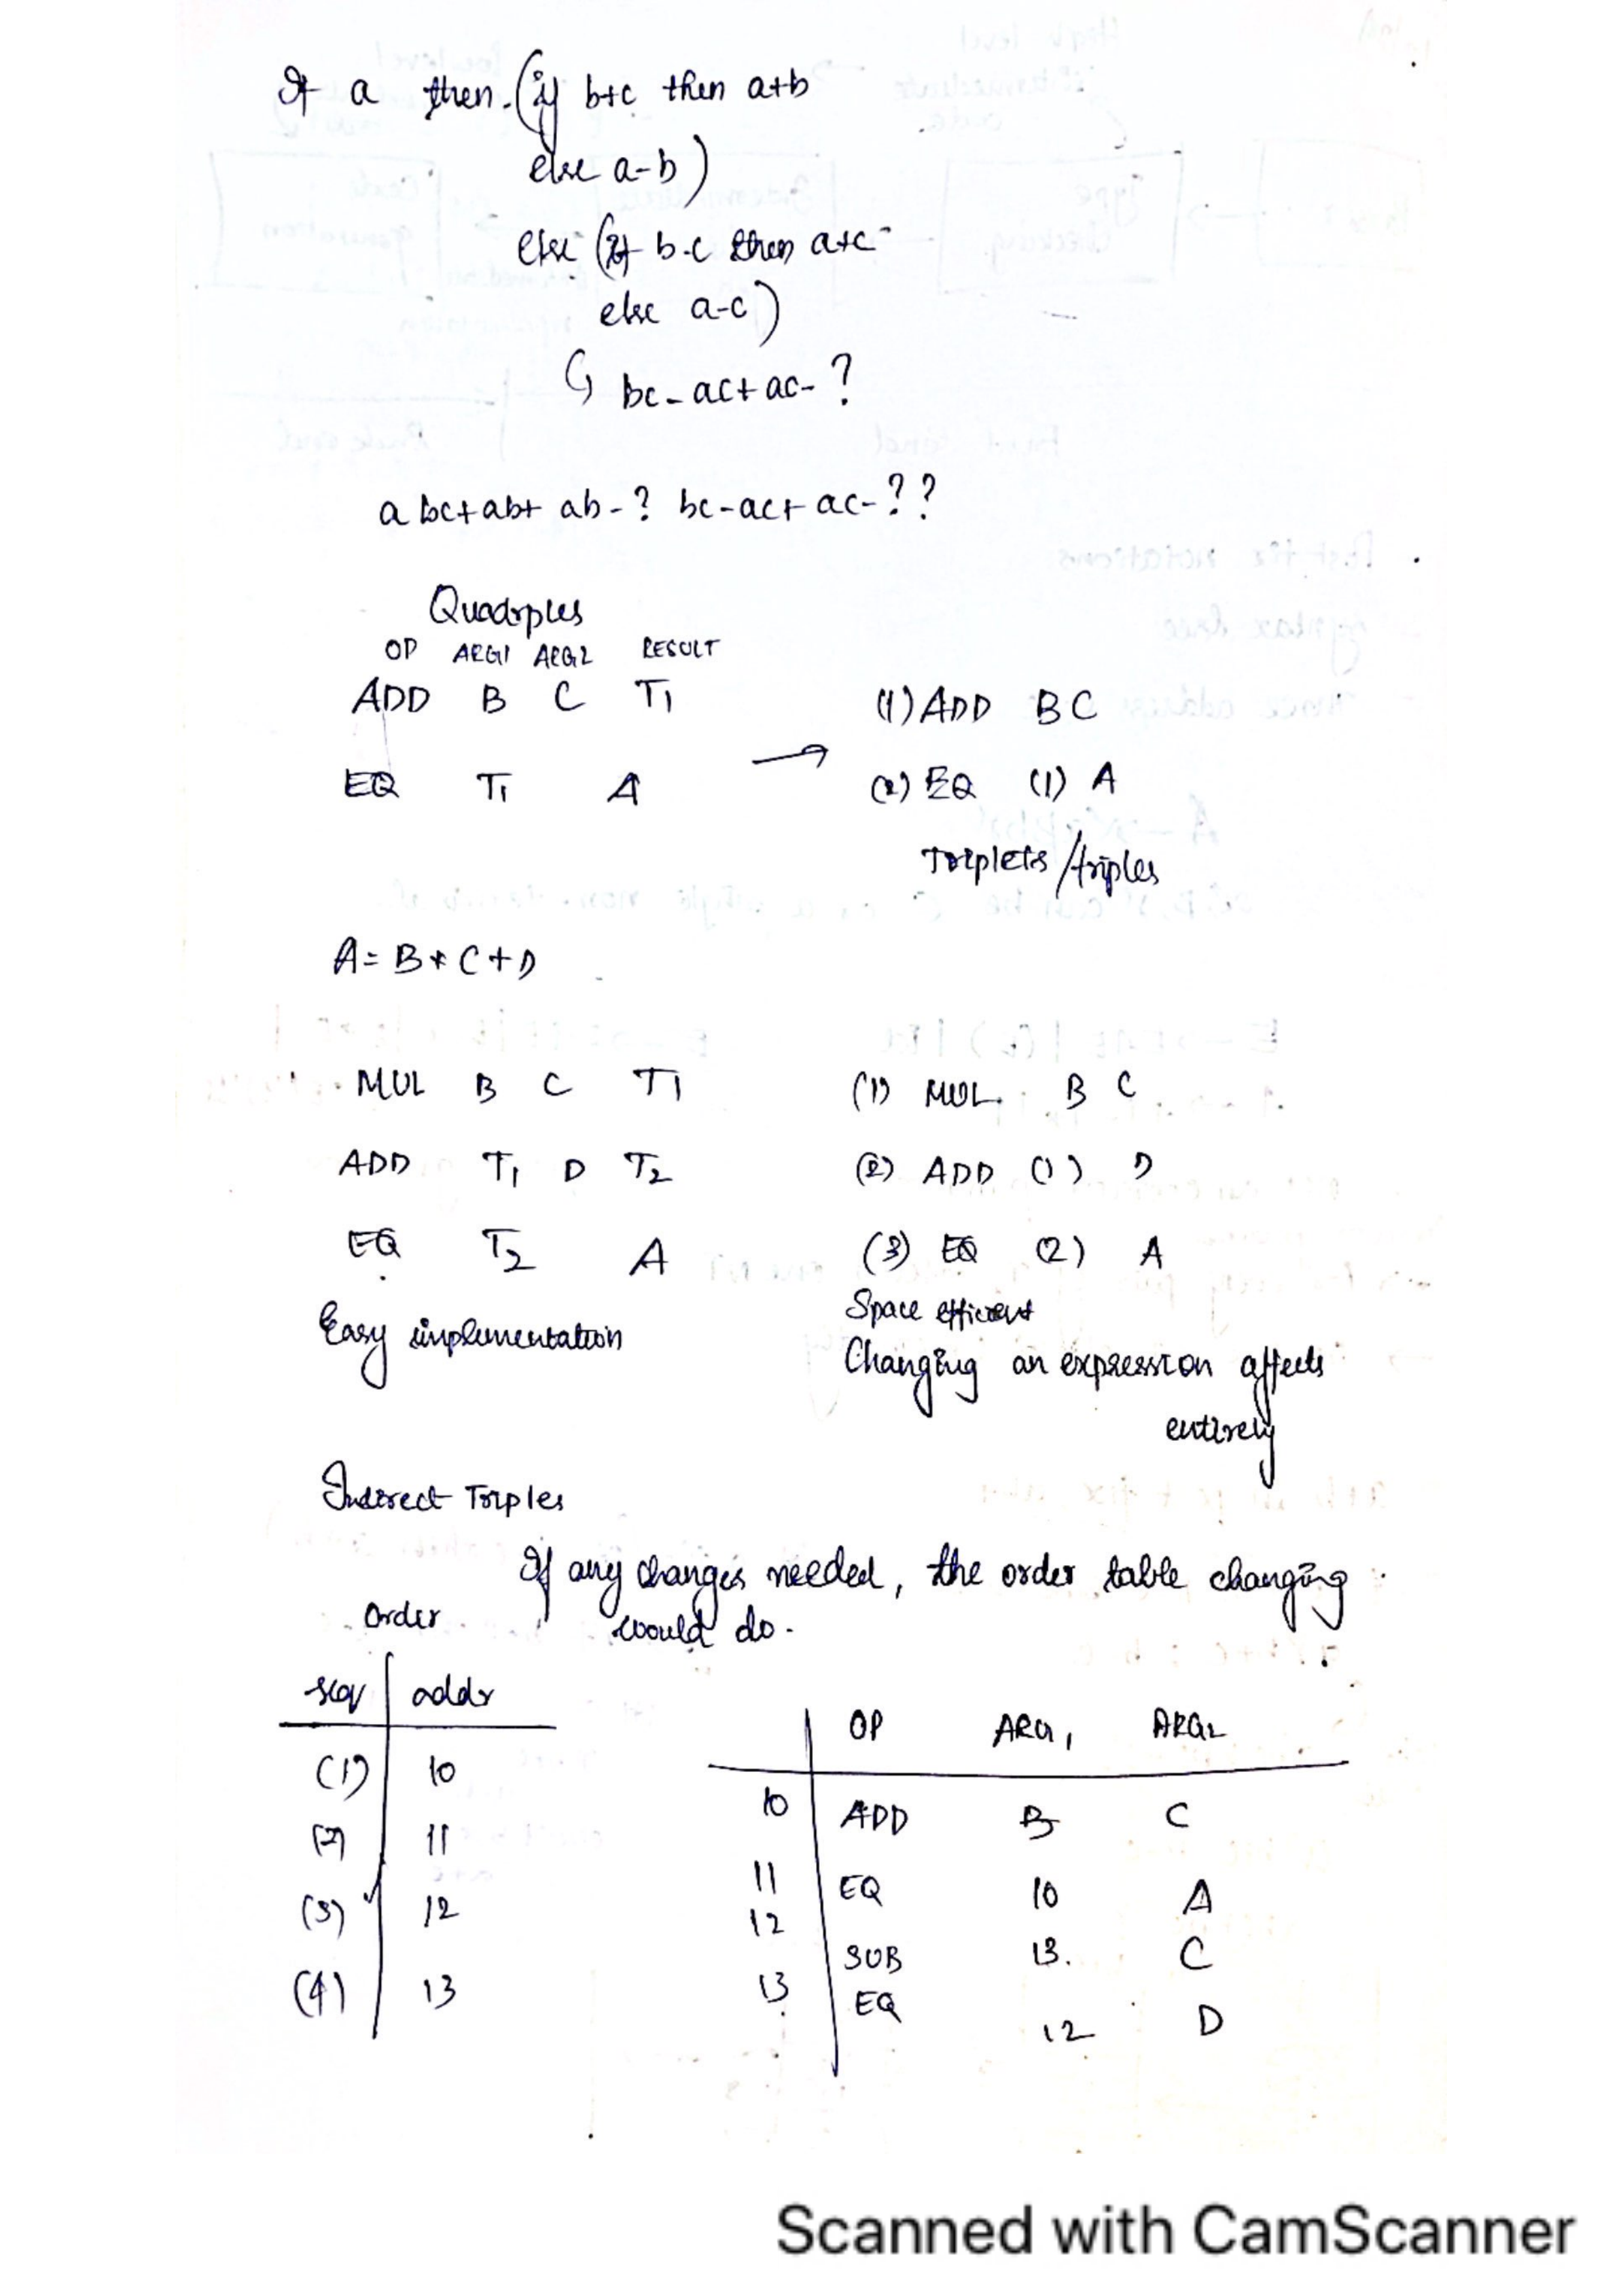 If a then (if b+c then a+b
else a-b)
else (if b-c then a+c
else a-c)
↳ bc-ac+ac-?
a bc+ab+ ab-? bc-ac+ ac-??
Quadrples
OP ARG1 ARG2 RESULT
ADD B C T1
EQ T1 A
→
(1) ADD B C
(2) EQ (1) A
Triplets/triples
A = B * C + D
MUL B C T1
ADD T1 D T2
EQ T2 A
Easy implementation
(1) MUL B C
(2) ADD (1) D
(3) EQ (2) A
Space efficient
Changing an expression affects
entirely
Indirect Triples
If any changes needed, the order table changing
would do.
Order
seq addr
(1) 10
(2) 11
(3) 12
(4) 13
OP ARG1 ARG2
10 ADD B C
11 EQ 10 A
12 SUB 13. C
13 EQ 12 D
Scanned with CamScanner